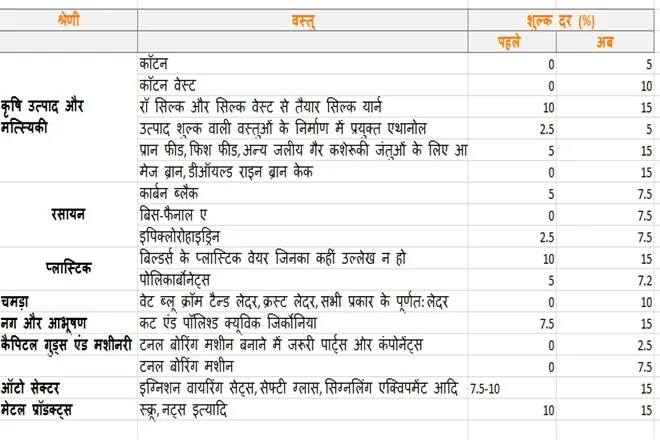 श्रेणी वस्तु शुल्क दर (%)
पहले अब
कॉटन 0 5
कॉटन वेस्ट 0 10
कृषि उत्पाद और रॉ सिल्क और सिल्क वेस्ट से तैयार सिल्क यार्न 10 15
मत्स्यिकी उत्पाद शुल्क वाली वस्तुओं के निर्माण में प्रयुक्त एथानोल 2.5 5
प्रान फीड, फिश फीड, अन्य जलीय गैर कशेरूकी जंतुओं के लिए आ 5 15
मेज ब्रान, डीऑयल्ड राइन ब्रान केक 0 15
कार्बन ब्लैक 5 7.5
रसायन बिस-फैनाल ए 0 7.5
इपिक्लोरोहाइड्रिन 2.5 7.5
प्लास्टिक बिल्डर्स के प्लास्टिक वेयर जिनका कहीं उल्लेख न हो 10 15
पोलिकार्बोनेट्स 5 7.2
चमड़ा वेट ब्लू क्रॉम टैन्ड लेदर, क्रस्ट लेदर, सभी प्रकार के पूर्णत: लेदर 0 10
नग और आभूषण कट एंड पॉलिश्ड क्यूविक जिर्कोनिया 7.5 15
कैपिटल गुड्स एंड मशीनरी टनल बोरिंग मशीन बनाने में जरूरी पार्ट्स ओर कंपोनेंट्स 0 2.5
टनल बोरिंग मशीन 0 7.5
ऑटो सेक्टर इग्निशन वायरिंग सेट्स, सेफ्टी ग्लास, सिग्नलिंग एक्विपमेंट आदि 7.5-10 15
मेटल प्रॉडक्ट्स स्क्रू, नट्स इत्यादि 10 15